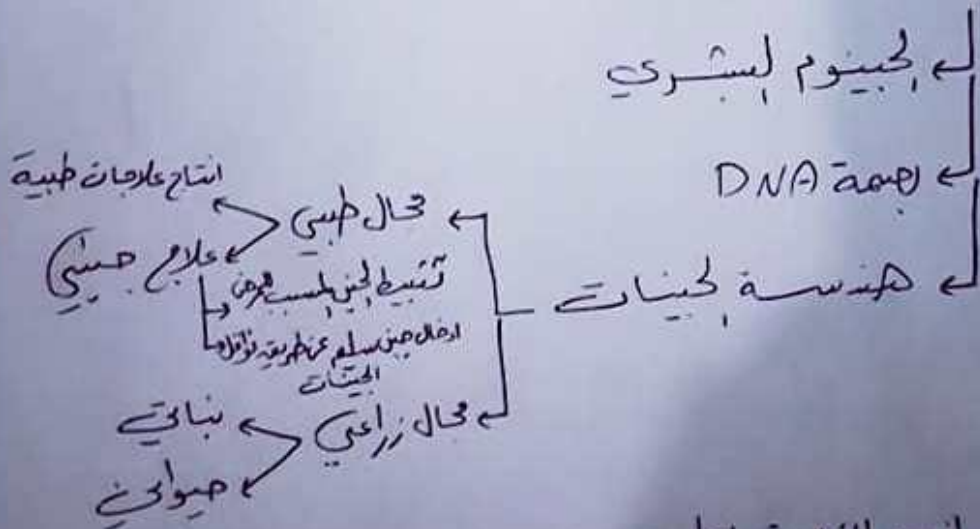 الجينوم البشري
بصمة DNA
هندسة الجينات
مجال طبي
انتاج علاجات طبية
علاج جيني
تثبيط الجين المسبب للمرض
ادخال جين سليم عن طريق نواقل
الجينات
مجال زراعي
نباتي
حيواني